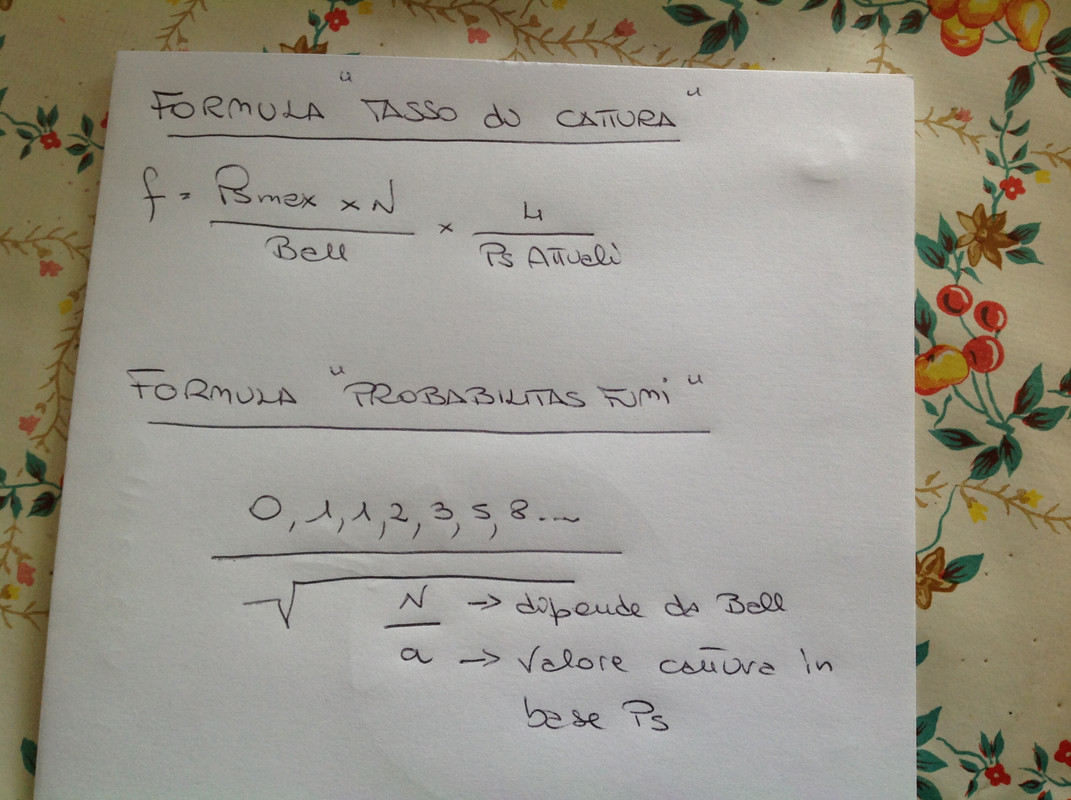 FORMULA "TASSO di CATTURA"
f = Ps max x N / Ball x 4 / Ps Attuali
FORMULA "PROBABILITAS FUMI"
0, 1, 1, 2, 3, 5, 8...
√ N → dipende da Ball
a → Valore cattura in
base Ps